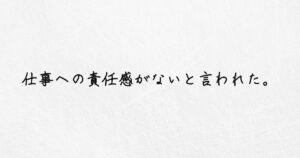 仕事への責任感がないと言われた。